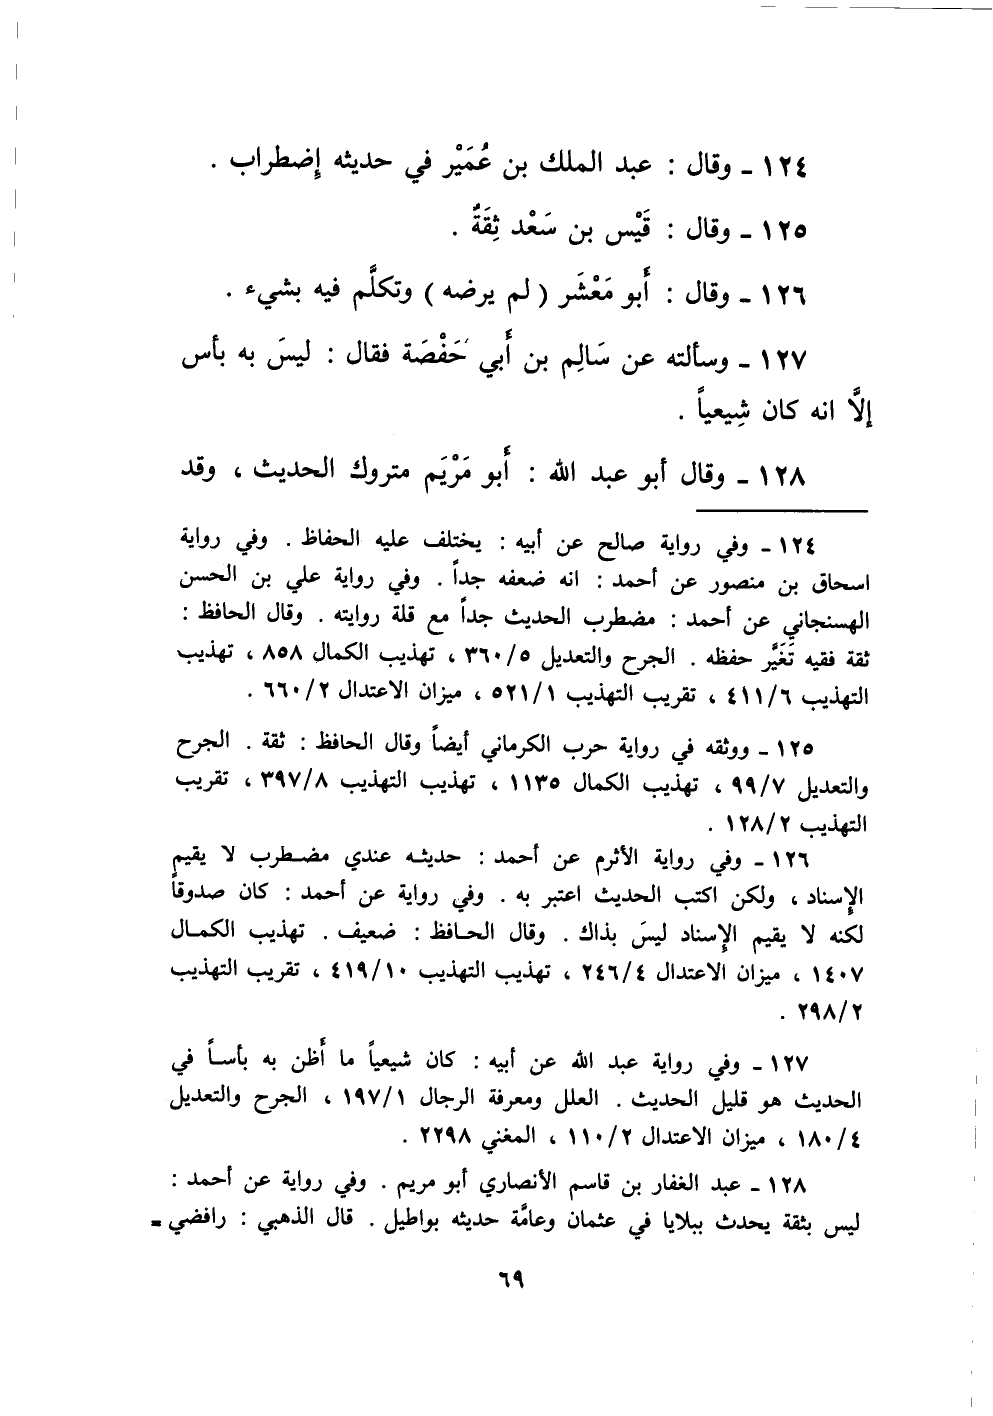 ١٢٤ ـ وقال : عبد الملك بن عُمَيْر في حديثه إِضطراب .
١٢٥ ـ وقال : قَيْس بن سَعْد ثِقَةٌ .
١٢٦ ـ وقال : أَبو مَعْشَر ( لم يرضه ) وتكلَّم فيه بشيء .
١٢٧ ـ وسألته عن سَالِم بن أَبي حَفْصَة فقال : ليسَ به بأس
إلاَّ انه كان شِيعياً .
١٢٨ ـ وقال أبو عبد الله : أَبو مَرْيَم متروك الحديث ، وقد
١٢٤ ـ وفي رواية صالح عن أبيه : يختلف عليه الحفاظ . وفي رواية
اسحاق بن منصور عن أحمد : انه ضعفه جداً . وفي رواية علي بن الحسن
الهسنجاني عن أحمد : مضطرب الحديث جداً مع قلة روايته . وقال الحافظ :
ثقة فقيه تَغَيَّر حفظه . الجرح والتعديل ٣٦٠/٥ ، تهذيب الكمال ٨٥٨ ، تهذيب
التهذيب ٤١١/٦ ، تقريب التهذيب ٥٢١/١ ، ميزان الاعتدال ٦٦٠/٢ .
١٢٥ ـ ووثقه في رواية حرب الكرماني أيضاً وقال الحافظ : ثقة . الجرح
والتعديل ٩٩/٧ ، تهذيب الكمال ١١٣٥ ، تهذيب التهذيب ٣٩٧/٨ ، تقريب
التهذيب ١٢٨/٢ .
١٢٦ ـ وفي رواية الأثرم عن أحمد : حديثه عندي مضطرب لا يقيم
الإِسناد ، ولكن اكتب الحديث اعتبر به . وفي رواية عن أحمد : كان صدوقاً
لكنه لا يقيم الإِسناد ليسَ بذاك . وقال الحافظ : ضعيف . تهذيب الكمال
١٤٠٧ ، ميزان الاعتدال ٢٤٦/٤ ، تهذيب التهذيب ٤١٩/١٠ ، تقريب التهذيب
٢٩٨/٢ .
١٢٧ ـ وفي رواية عبد الله عن أبيه : كان شيعياً ما أَظن به بأساً في
الحديث هو قليل الحديث . العلل ومعرفة الرجال ١٩٧/١ ، الجرح والتعديل
١٨٠/٤ ، ميزان الاعتدال ١١٠/٢ ، المغني ٢٢٩٨ .
١٢٨ ـ عبد الغفار بن قاسم الأنصاري أبو مريم . وفي رواية عن أحمد :
ليس بثقة يحدث ببلايا في عثمان وعامَّة حديثه بواطيل . قال الذهبي : رافضي =
٦٩